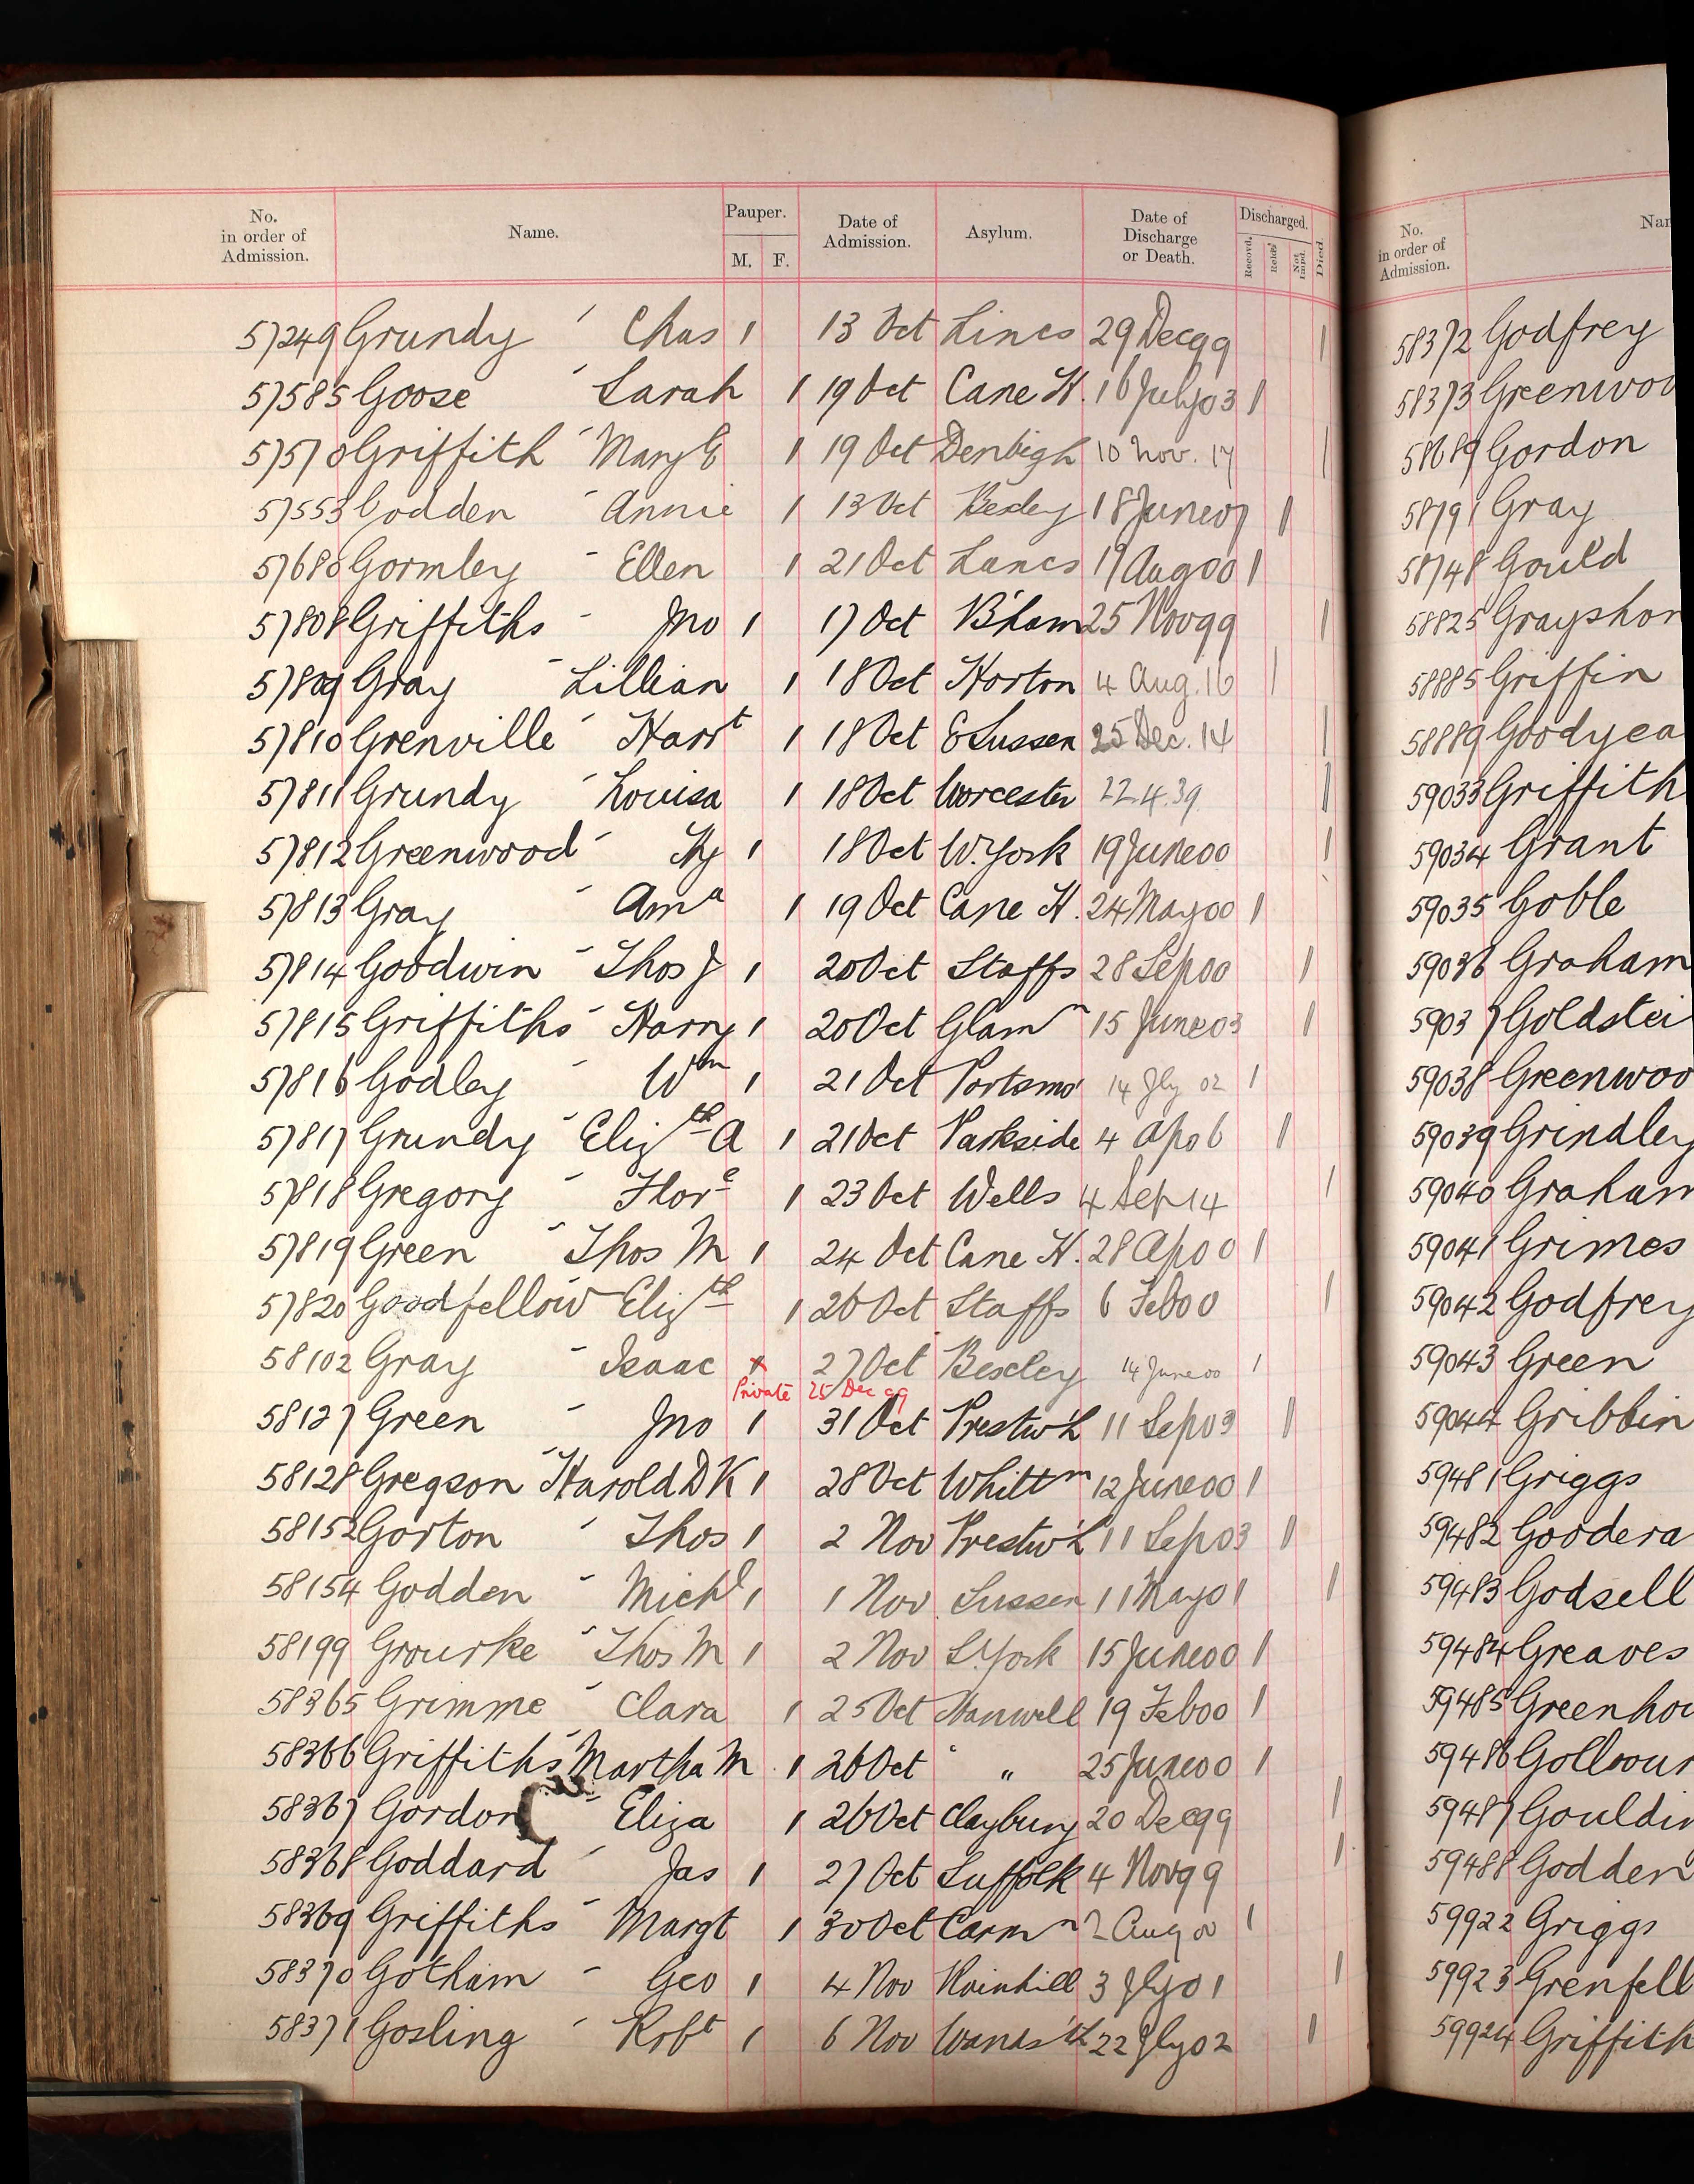 No. in order of Admission. Name. Pauper. M. F. Date of Admission. Asylum. Date of Discharge or Death. Discharged. Recovd. Relvd. Not Impd. Died.
57249 Grundy ' Chas 1 13 Oct Lincs 29 Dec 99 1
57585 Goose ' Sarah 1 19 Oct Cane H. 16 July 03 1
57570 Griffith - Mary E 1 19 Oct Denbigh 10 Nov. 17 1
57553 Godden - Annie 1 13 Oct Bexley 18 June 07 1
57680 Gormley - Ellen 1 21 Oct Lancs 19 Aug 00 1
57808 Griffiths - Jno 1 17 Oct B'ham 25 Nov 99 1
57809 Gray - Lillian 1 18 Oct Horton 4 Aug. 16 1
57810 Grenville ' Harrt 1 18 Oct E Sussex 25 Dec. 14 1
57811 Grundy - Louisa 1 18 Oct Worcester 22.4.39 1
57812 Greenwood - Hy 1 18 Oct W. York 19 June 00 1
57813 Gray - Ama 1 19 Oct Cane H. 24 May 00 1
57814 Goodwin - Thos J 1 20 Oct Staffs 28 Sep 00 1
57815 Griffiths - Harry 1 20 Oct Glamn 15 June 03 1
57816 Godley - Wm 1 21 Oct Portsmo' 14 Jly 02 1
57817 Grundy - Elizth A 1 21 Oct Parkside 4 Ap 06 1
57818 Gregory - Flore 1 23 Oct Wells 4 Sep 14 1
57819 Green - Thos M 1 24 Oct Cane H. 28 Ap 00 1
57820 Goodfellow - Elizth 1 26 Oct Staffs 6 Feb 00 1
58102 Gray - Isaac x 27 Oct Bexley 14 June 00 1
Private 25 Dec 99
58127 Green - Jno 1 31 Oct Prestw'h 11 Sep 03 1
58128 Gregson - Harold D K 1 28 Oct Whittm 12 June 00 1
58152 Gorton ' Thos 1 2 Nov Prestw'h 11 Sep 03 1
58154 Godden - Michl 1 1 Nov Sussex 11 May 01 1
58199 Grourke - Thos M 1 2 Nov S. York 15 June 00 1
58365 Grimme - Clara 1 25 Oct Hanwell 19 Feb 00 1
58366 Griffiths - Martha M 1 26 Oct " 25 June 00 1
58367 Gordon - Eliza 1 26 Oct Claybury 20 Dec 99 1
58368 Goddard ' Jas 1 27 Oct Suffolk 4 Nov 99 1
58369 Griffiths - Margt 1 30 Oct Carmn 2 Aug 00 1
58370 Gotham - Geo 1 4 Nov Rainhill 3 Jly 01 1
58371 Gosling ' Robt 1 6 Nov Wands'th 22 Jly 02 1
No. in order of Admission. Nam
58372 Godfrey
58373 Greenwoo
58689 Gordon
58791 Gray
58748 Gould
58825 Grayshon
58885 Griffin
58889 Goodyea
59033 Griffith
59034 Grant
59035 Goble
59036 Graham
59037 Goldstei
59038 Greenwoo
59039 Grindley
59040 Graham
59041 Grimes
59042 Godfrey
59043 Green
59044 Gribbin
59481 Griggs
59482 Goodera
59483 Godsell
59484 Greaves
59485 Greenhou
59486
59487 Gouldin
59488 Godden
59922 Griggs
59923 Grenfell
59924 Griffith